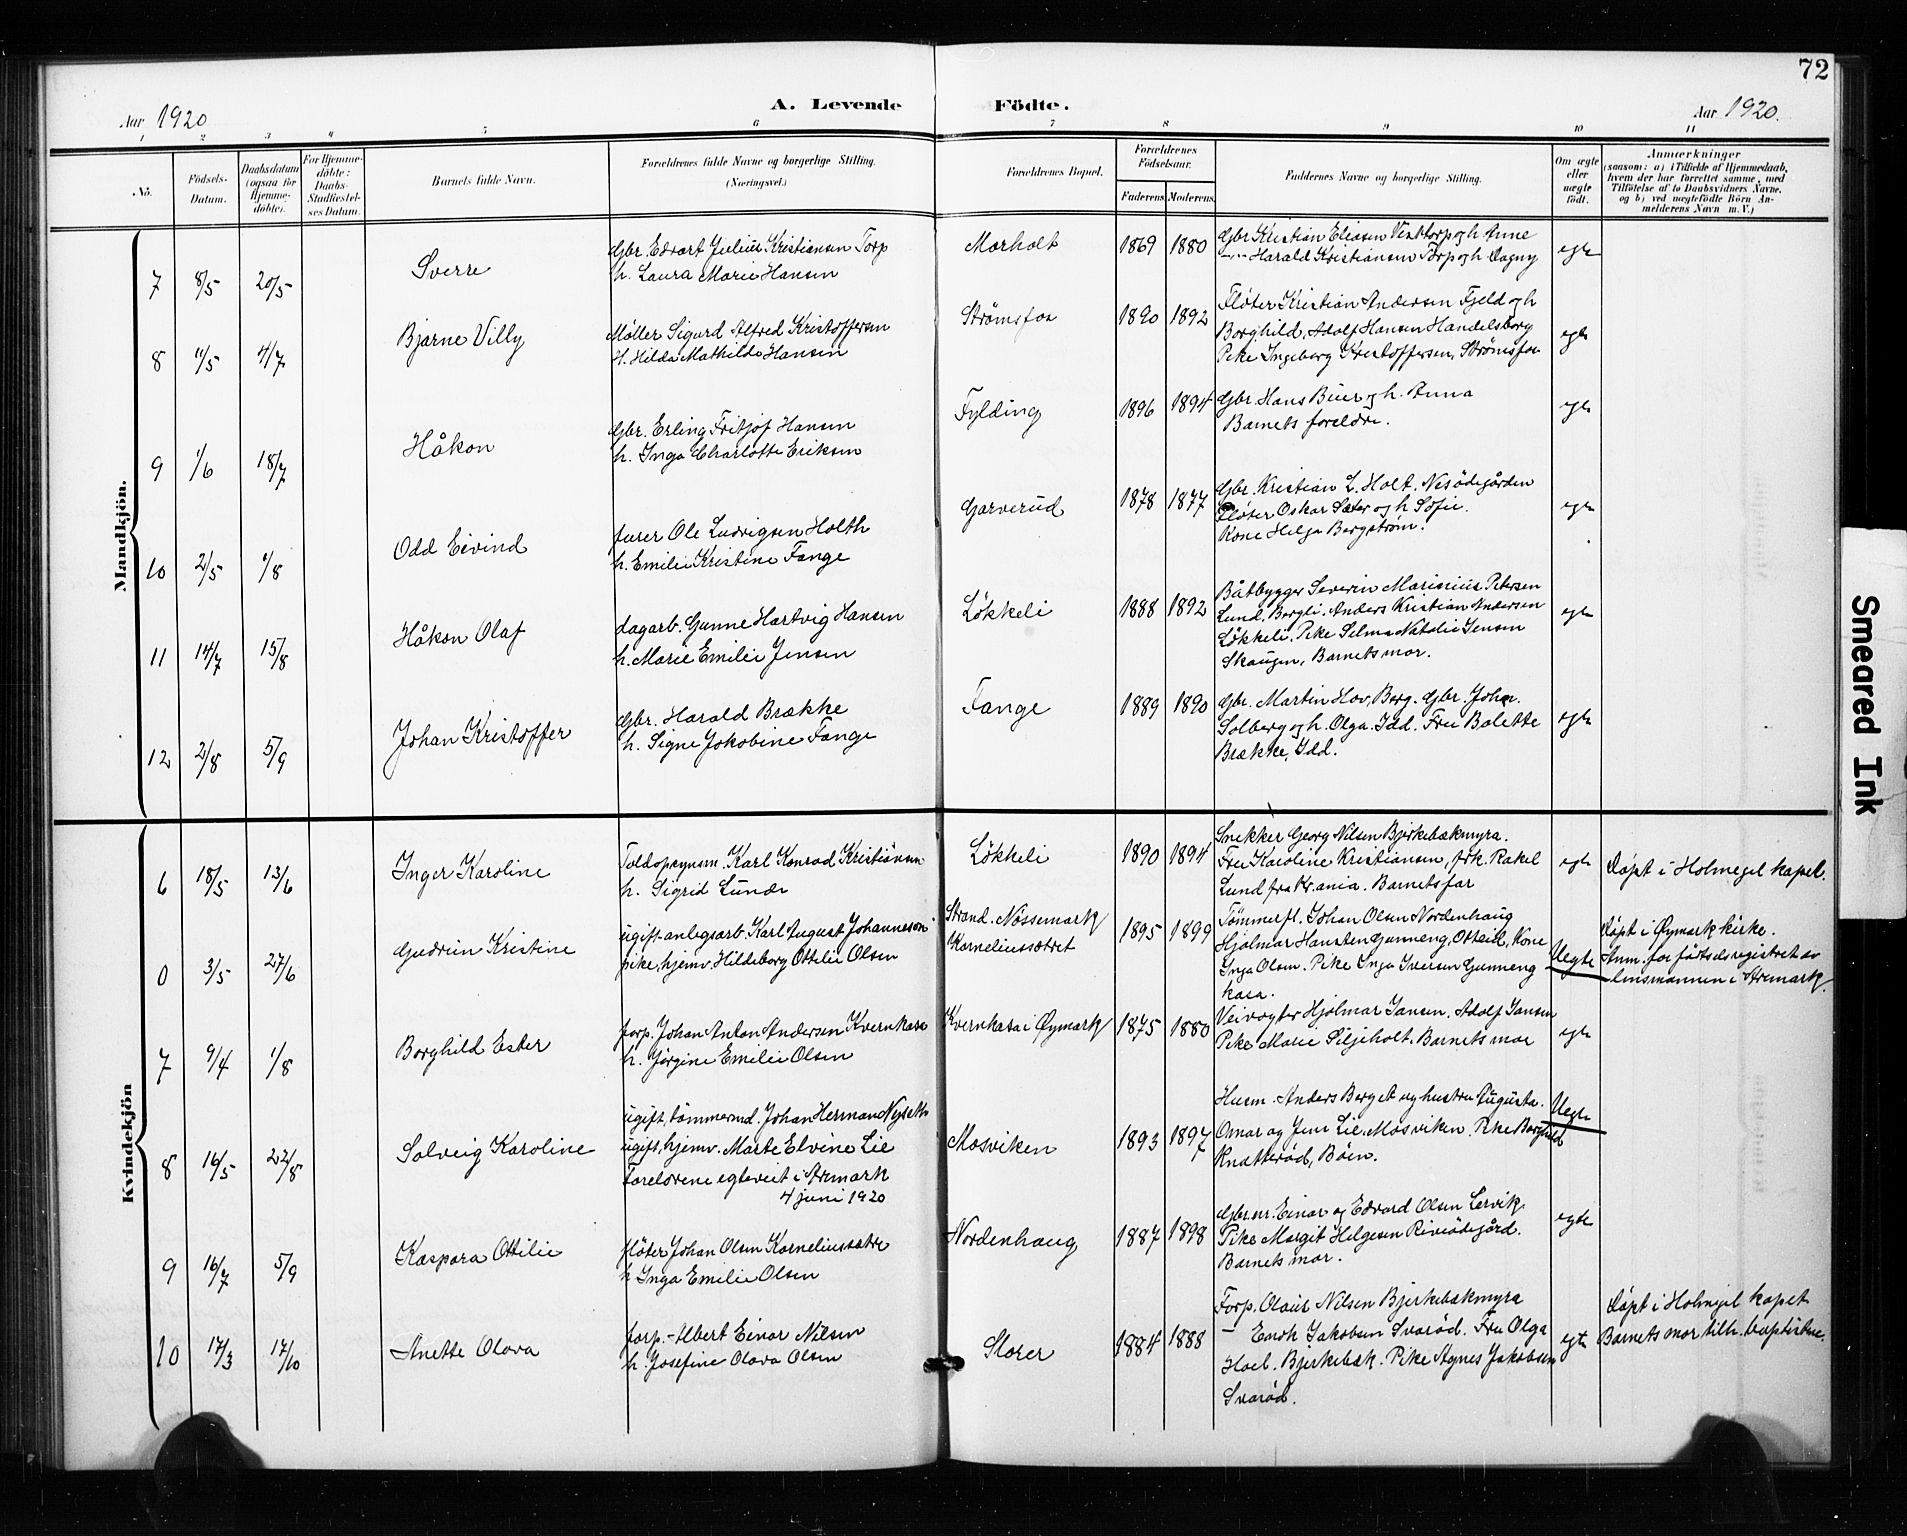 72
Aar 1920
A. Levende Födte.
Aar 1920.
1 2 3 4 5 6 7 8 9 10 11
No.
Födsels-Datum.
Daabsdatum (ogsaa for Hjemme-döbte).
For Hjemme-döbte: Daabs-Stadfæstel-ses Datum.
Barnets fulde Navn.
Forældrenes fulde Navne og borgerlige Stilling.
(Næringsvei.)
Forældrenes Bopæl.
Forældrenes Födselsaar.
Faderens Moderens
Faddernes Navne og borgerlige Stilling.
Om ægte eller uægte födt.
Anmærkninger
(saasom: a) i Tilfælde af Hjemmedaab,
hvem der har forrettet samme, med
Tilföielse af to Daabsvidners Navne,
og b) ved uægtefödte Börn An-
melderens Navn m. V.)
Mandkjön.
7 8/5 20/5 Sverre
Gbr. Edvart Julius Kristiansen Torp
h. Laura Marie Hansen
Morholt 1869 1880
Gbr Kristian Eliasen Visttorp og h. Anne
—"— Harald Kristiansen Torp og h Dagny
egte
8 11/5 4/7 Bjarne Villy
Møller Sigurd Alfred Kristoffersen
H. Hilda Mathilde Hansen
Strømsfos 1890 1892
Fløter Kristian Andersen Fjeld og h
Borghild, Adolf Hansen Handelsborg
Pike Ingeborg Kristoffersen, Strømsfos
egte
9 1/6 18/7 Håkon
Gbr. Erling Fritjof Hansen
h. Inga Charlotte Eriksen
Fylding 1896 1894
Gbr. Hans Buer og h. Anna
Barnets foreldre.
egte
10 2/5 1/8 Odd Eivind
furer Ole Ludvigsen Holth
h. Emilie Kristine Fange
Garverud 1878 1877
Gbr. Kristian L. Holt. Nesødegården
Fløter Oskar Sæter og h Sofie.
Kone Helga Bergstrøm.
egte
11 14/7 15/8 Håkon Olaf
dagarb. Gunne Hartvig Hansen
h. Marie Emilie Jensen
Løkkeli 1888 1892
Båtbygger Severin Marinius Petersen
Lund, Bergli. Anders Kristian Andersen
Løkkeli. Pike Selma Natalie Jensen
Skaugen, Barnets mor.
egte
12 2/8 5/9 Johan Kristoffer
Gbr. Harald Brække
h. Signe Jakobine Fange
Fange 1889 1890
Gbr. Martin Hov, Berg. Gbr. John.
Solberg og h. Olga. Idd. Fru Bolette
Brække, Idd.
egte
Kvindekjön
6 18/5 13/6 Inger Karoline
Toldopsynsm. Karl Konrad Kristiansen
h. Sigrid Lunde
Løkkeli 1890 1894
Snekker Georg Nilsen Bjerkebækmyra.
Fru Karoline Kristiansen, frk. Rakel
Lund fra Kr.ania. Barnets far
egte
Døpt i Holmegil kapel.
0 3/5 27/6 Gudrun Kristine
ugift anlegsarb. Karl August Johannesson
pike, hjemv. Hildeborg Ottilie Olsen
Strand. Nössemark
Korneliussætret
1895 1899
Tømmerfl. Johan Olsen Nordenhaug
Hjalmar Hansten Gunneng, Otteid, Kone
Inga Olsen. Pike Inga Iversen Gunneng
kasa.
Uegte
Døpt i Øymark kirke.
Anm. for førtselsregistret av
lensmannen i Aremark.
7 9/4 1/8 Borghild Ester
forp. Johan Anton Andersen Kvernkase
h. Jørgine Emilie Olsen
Kvernkasa i Øymark 1875 1880
Veivogter Hjalmar Jansen. Adolf Jansen
Pike Marie Siljeholt. Barnets mor
egte
8 16/5 22/8 Solveig Karoline
ugift, tømmermd. Johan Herman Nyseth
ugift, hjemv. Marte Elvine Lie
Foreldrene egteviet i Aremark
4 juni 1920
Mosviken 1893 1897
Husm. Anders Berget og hustru Augusta.
Omar og Jens Lie, Mosviken. Pike Borghild
Knatterød, Böen.
Uegte
9 16/7 5/9 Kaspara Ottilie
fløter Johan Olsen Korneliussætre
h Inga Emilie Olsen
Nordenhaug 1887 1898
Gbr.nr. Einar og Edvard Olsen Lervik
Pike Margit Helgesen Riviødegård.
Barnets mor.
egte
10 17/3 17/10 Anette Olava
forp. Albert Einar Nilsen
h. Josefine Olava Olsen
Storer 1884 1888
Forp. Olaus Nilsen Bjerkebækmyra
— Enok Jakobsen Svarød. Fru Olga
Hoel. Bjerkebæk. Pike Agnes Jakobsen
Svarød.
egte
Døpt i Holmegil kapel
Barnets mor tilh. baptistene.
Smeared Ink